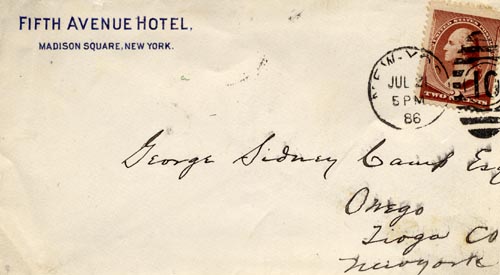 FIFTH AVENUE HOTEL,
MADISON SQUARE, NEW YORK.
UNITED STATES
TWO CENTS
NEW-YO
JUL 2
5 PM
86
George Sidney Camp Esq
Owego
Tioga Co
Newyork